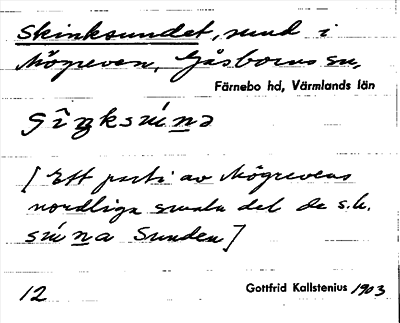 Skinksundet, sund i
Mögreven, Gåsborns sn,
Färnebo hd, Värmlands län
[Ett parti av Mögrevens
nordliga smala del de s.k.
Sunden]
12
Gottfrid Kallstenius 1903